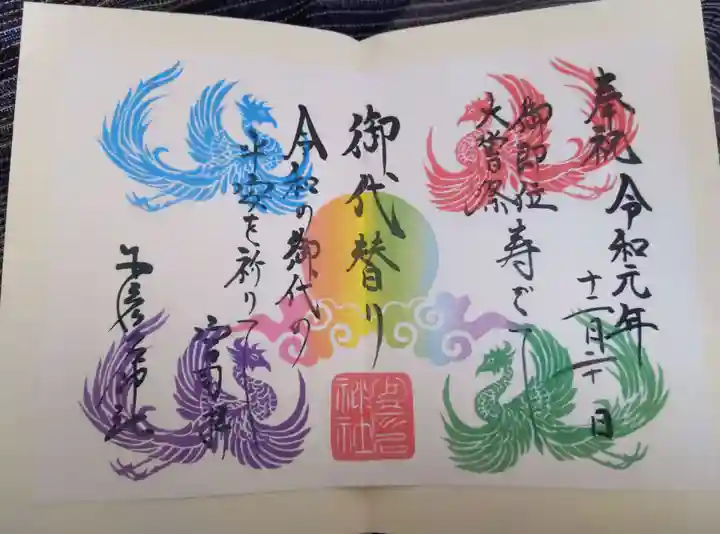 奉祝 令和元年
十二月二十日
御即位
大嘗祭
寿ぎ
御代替り
令和の御代の
平安を祈りて
宮司拝
神社